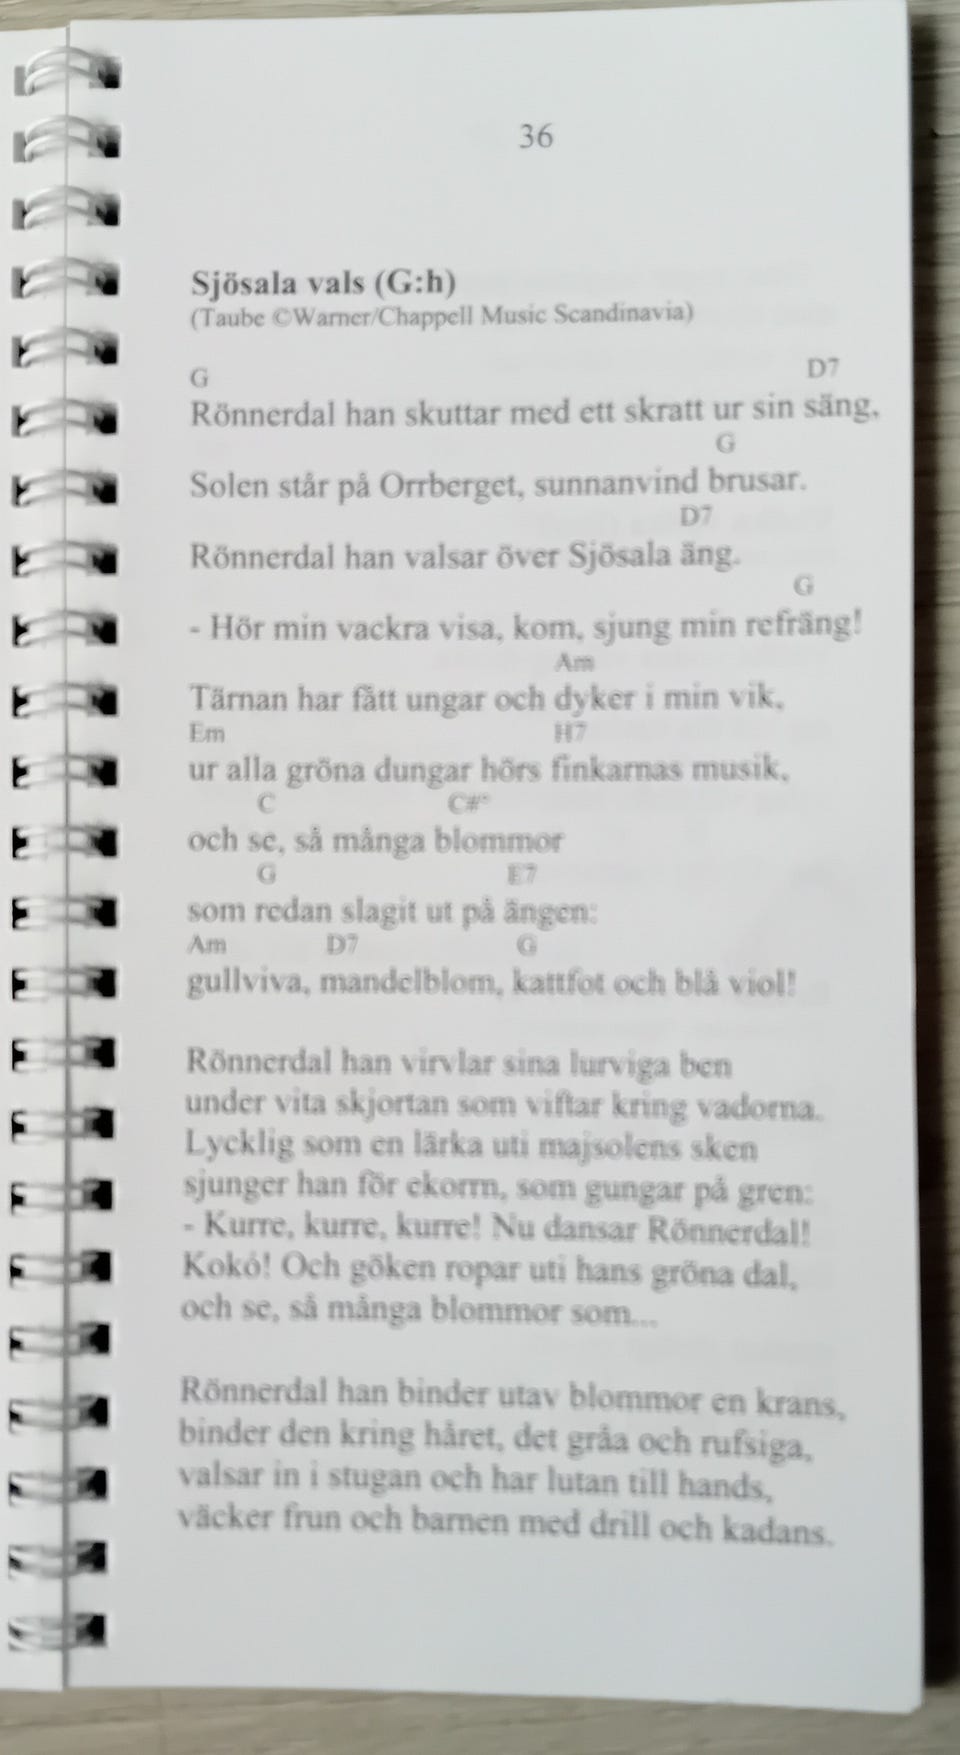 36
Sjösala vals (G:h)
(Taube ©Warner/Chappell Music Scandinavia)
G D7
Rönnerdal han skuttar med ett skratt ur sin säng,
G
Solen står på Orrberget, sunnanvind brusar.
D7
Rönnerdal han valsar över Sjösala äng.
G
- Hör min vackra visa, kom, sjung min refräng!
Am
Tärnan har fått ungar och dyker i min vik,
Em H7
ur alla gröna dungar hörs finkarnas musik,
C C#°
och se, så många blommor
G E7
som redan slagit ut på ängen:
Am D7 G
gullviva, mandelblom, kattfot och blå viol!
Rönnerdal han virvlar sina lurviga ben
under vita skjortan som viftar kring vadorna.
Lycklig som en lärka uti majsolens sken
sjunger han för ekorrn, som gungar på gren:
- Kurre, kurre, kurre! Nu dansar Rönnerdal!
Kokó! Och göken ropar uti hans gröna dal,
och se, så många blommor som...
Rönnerdal han binder utav blommor en krans,
binder den kring håret, det gråa och rufsiga,
valsar in i stugan och har lutan till hands,
väcker frun och barnen med drill och kadans.